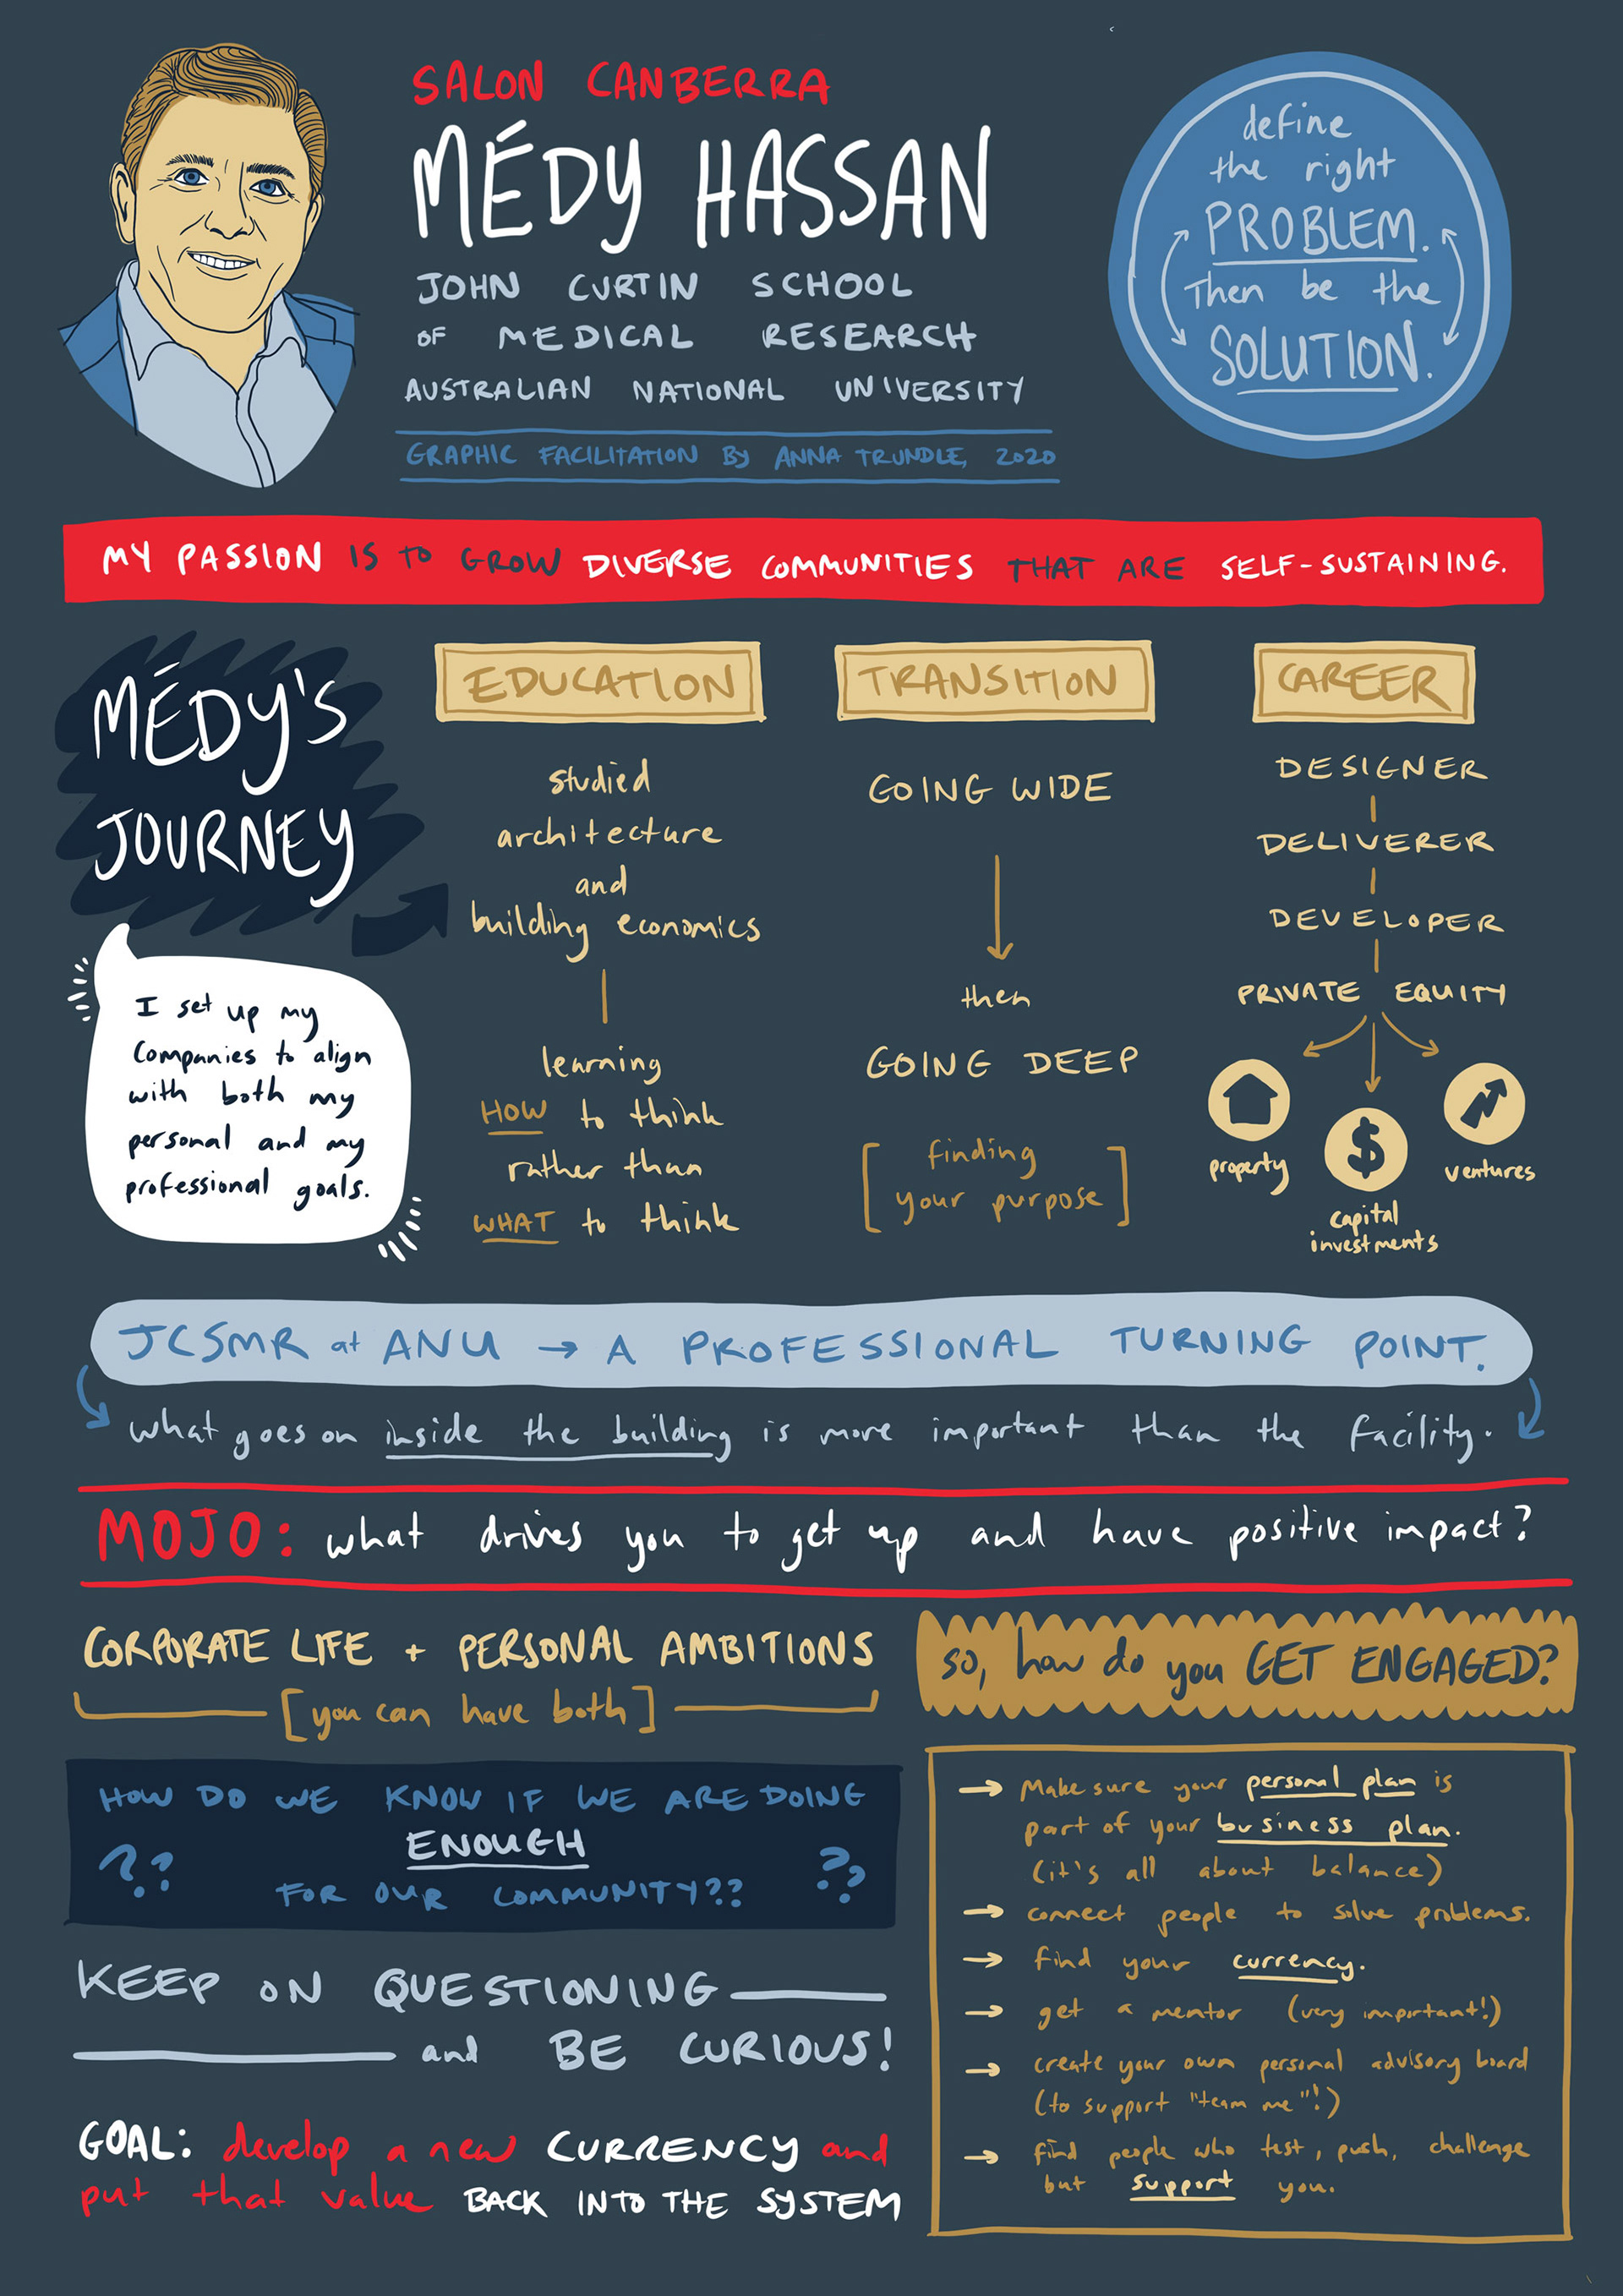 SALON CANBERRA
MÉDY HASSAN
JOHN CURTIN SCHOOL
OF MEDICAL RESEARCH
AUSTRALIAN NATIONAL UNIVERSITY
GRAPHIC FACILITATION BY ANNA TRUNDLE, 2020
define
the right
PROBLEM.
Then be the
SOLUTION.
MY PASSION IS TO GROW DIVERSE COMMUNITIES THAT ARE SELF-SUSTAINING.
MÉDY'S
JOURNEY
I set up my
Companies to align
with both my
personal and my
professional goals.
EDUCATION
studied
architecture
and
building economics
learning
HOW to think
rather than
WHAT to think
TRANSITION
GOING WIDE
then
GOING DEEP
[finding
your purpose]
CAREER
DESIGNER
DELIVERER
DEVELOPER
PRIVATE EQUITY
property
$
capital
investments
ventures
JCSMR at ANU → A PROFESSIONAL TURNING POINT.
what goes on inside the building is more important than the facility.
MOJO: what drives you to get up and have positive impact?
CORPORATE LIFE + PERSONAL AMBITIONS
[you can have both]
HOW DO WE KNOW IF WE ARE DOING
ENOUGH
?? ??
FOR OUR COMMUNITY??
KEEP ON QUESTIONING
and BE CURIOUS!
GOAL: develop a new CURRENCY and
put that value BACK INTO THE SYSTEM
so, how do you GET ENGAGED?
→ Make sure your personal plan is
part of your business plan.
(it's all about balance)
→ connect people to solve problems.
→ find your currency.
→ get a mentor (very important!)
→ create your own personal advisory board
(to support "team me"!)
→ find people who test, push, challenge
but support you.